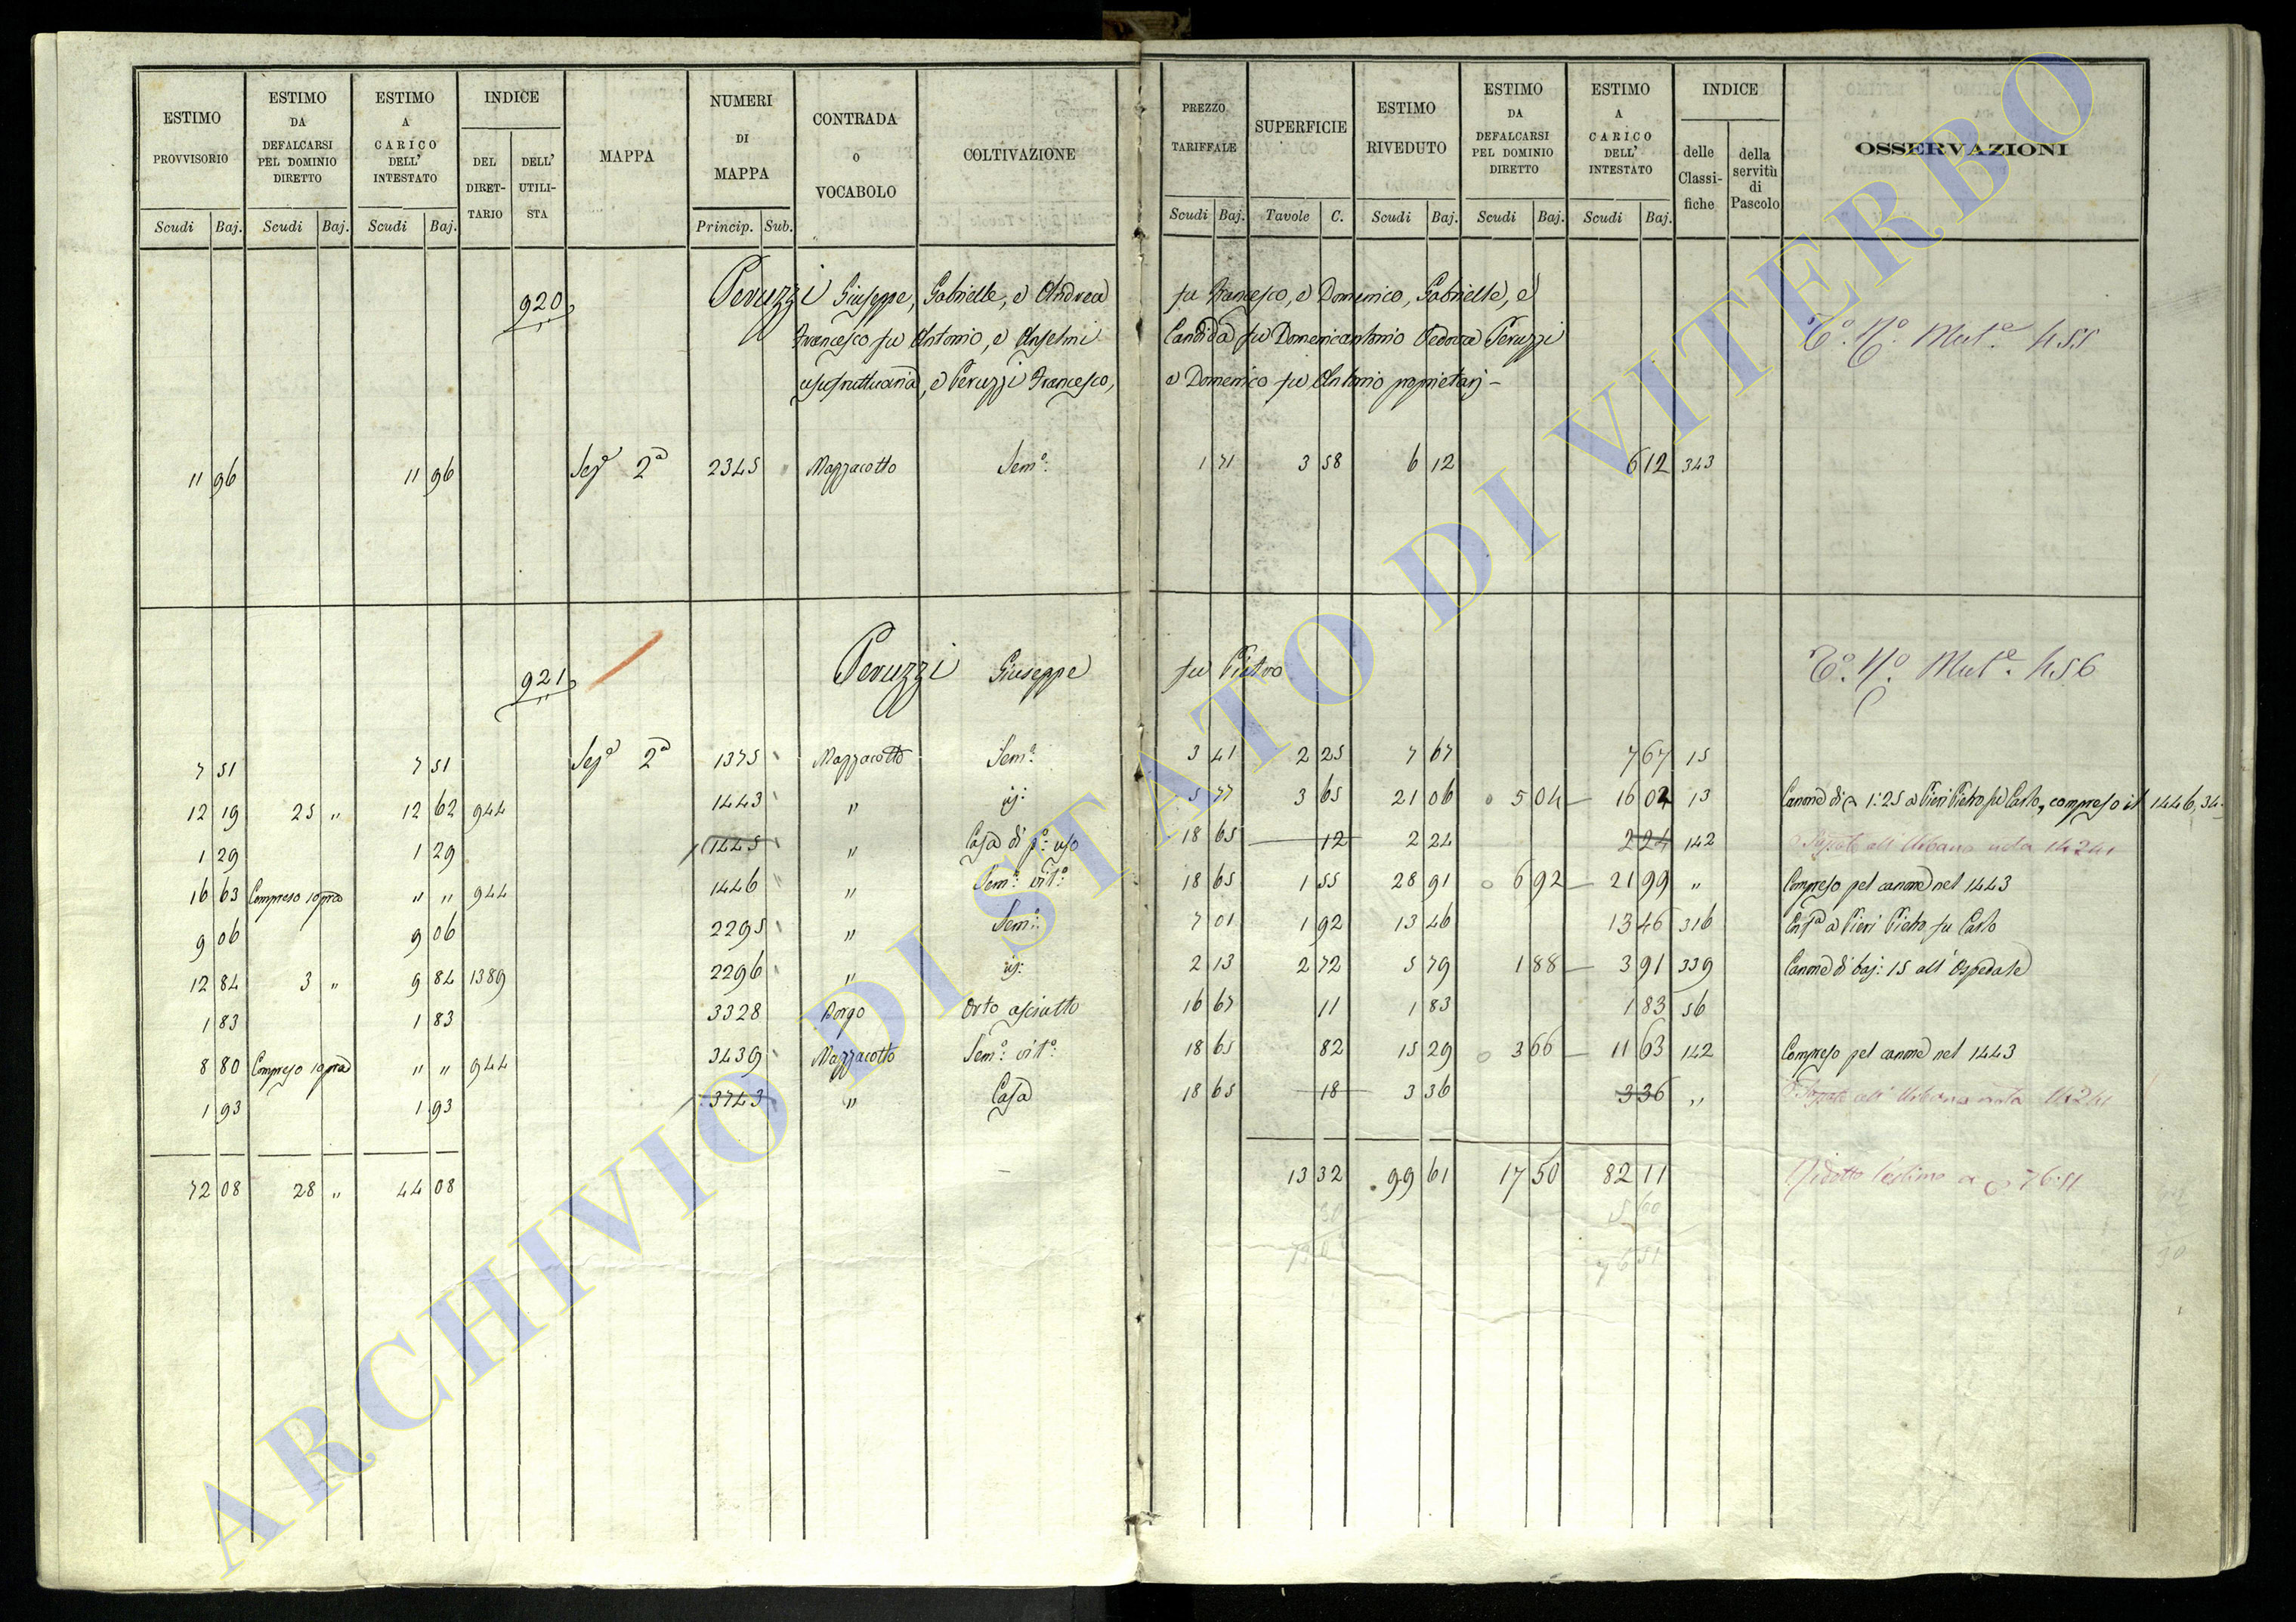 ESTIMO PROVVISORIO Scudi Baj.
ESTIMO DA DEFALCARSI PEL DOMINIO DIRETTO Scudi Baj.
ESTIMO A CARICO DELL' INTESTATO Scudi Baj.
INDICE DEL DIRET-TARIO DELL' UTILI-STA
MAPPA
NUMERI DI MAPPA Princip. Sub.
CONTRADA O VOCABOLO
COLTIVAZIONE
PREZZO TARIFFALE Scudi Baj.
SUPERFICIE Tavole C.
ESTIMO RIVEDUTO Scudi Baj.
ESTIMO DA DEFALCARSI PEL DOMINIO DIRETTO Scudi Baj.
ESTIMO A CARICO DELL' INTESTATO Scudi Baj.
INDICE delle Classi-fiche della servitù di Pascolo
OSSERVAZIONI
920 Peruzzi Giuseppe, Gabrielle, e Andrea fu Francesco, e Domenico, Gabrielle, e
Francesco fu Antonio, e Anselmi Candida fu Domenicantonio Vedova Peruzzi
usufruttuaria, e Peruzzi Francesco, e Domenico fu Antonio proprietarj -
Mut.e 455
11 96 11 96 Sez.e 2a 2345 Mazzacotto Sem.o: 1 71 3 58 6 12 6 12 343
921 Peruzzi Giuseppe fu Pietro Mut.e 456
7 51 7 51 Sez.e 2a 1375 Mazzacotto Sem.o 3 41 2 25 7 67 7 67 15
12 19 25 " 12 62 944 1443 " id: 5 77 3 65 21 06 5 04 16 02 13 Canone di 1:25 a Pieri Pietro fu Carlo, compreso il 1446, 34
1 29 1 29 1445 " Casa di p.o: uso 18 65 12 2 24 2 24 142 all'Urbano nota 14241
16 63 Compreso sopra " " 944 1446 " Sem.o: vit.o: 18 65 1 55 28 91 6 92 21 99 " Compreso pel canone nel 1443
9 06 9 06 2295 " Sem.o: 7 01 1 92 13 46 13 46 316 a Pieri Pietro fu Carlo
12 84 3 " 9 84 1389 2296 " id: 2 13 2 72 5 79 1 88 3 91 339 Canone di baj: 15 all'Ospedale
1 83 1 83 3328 Borgo Orto asciutto 16 67 11 1 83 1 83 56
8 80 Compreso sopra " " 944 3439 Mazzacotto Sem.o: vit.o: 18 65 82 15 29 3 66 11 63 142 Compreso pel canone nel 1443
1 93 1 93 3743 " Casa 18 65 18 3 36 3 36 " all'Urbano nota 14241
72 08 28 " 44 08 13 32 99 61 17 50 82 11 Ridotto l'estimo a 76:51
30 5 60
76 51
ARCHIVIO DI STATO DI VITERBO